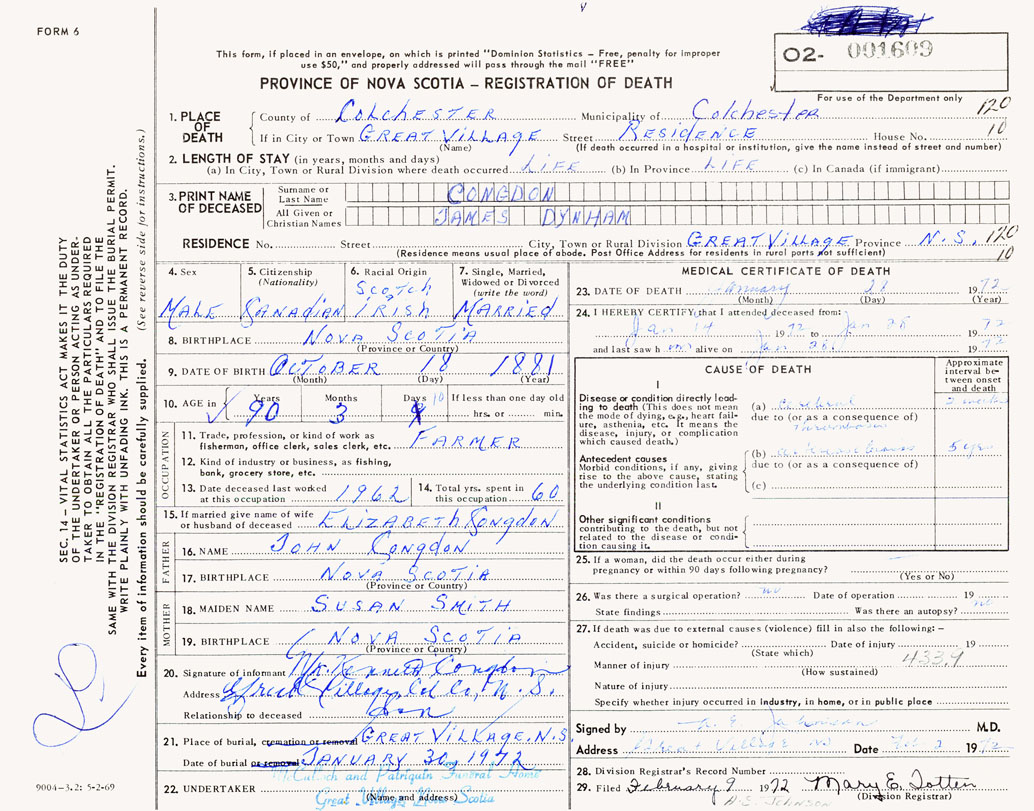 FORM 6
This form, if placed in an envelope, on which is printed "Dominion Statistics – Free, penalty for improper
use $50," and properly addressed will pass through the mail "FREE"
PROVINCE OF NOVA SCOTIA – REGISTRATION OF DEATH
O2- 001609
For use of the Department only
1. PLACE OF DEATH
County of COLCHESTER Municipality of Colchester 120
If in City or Town GREAT VILLAGE Street RESIDENCE House No. 10
(Name) (If death occurred in a hospital or institution, give the name instead of street and number)
2. LENGTH OF STAY (in years, months and days)
(a) In City, Town or Rural Division where death occurred LIFE (b) In Province LIFE (c) In Canada (if immigrant)
3. PRINT NAME OF DECEASED
Surname or Last Name CONGDON
All Given or Christian Names JAMES DYNHAM
RESIDENCE No. Street City, Town or Rural Division GREAT VILLAGE Province N.S. 120
(Residence means usual place of abode. Post Office Address for residents in rural parts not sufficient) 10
4. Sex MALE
5. Citizenship (Nationality) CANADIAN
6. Racial Origin SCOTCH IRISH
7. Single, Married, Widowed or Divorced (write the word) MARRIED
8. BIRTHPLACE NOVA SCOTIA
(Province or Country)
9. DATE OF BIRTH OCTOBER 18 1881
(Month) (Day) (Year)
10. AGE in Years 90 Months 3 Days 10 If less than one day old hrs. or min.
OCCUPATION
11. Trade, profession, or kind of work as fisherman, office clerk, sales clerk, etc. FARMER
12. Kind of industry or business, as fishing, bank, grocery store, etc.
13. Date deceased last worked at this occupation 1962
14. Total yrs. spent in this occupation 60
15. If married give name of wife or husband of deceased ELIZABETH CONGDON
FATHER
16. NAME JOHN CONGDON
17. BIRTHPLACE NOVA SCOTIA
(Province or Country)
MOTHER
18. MAIDEN NAME SUSAN SMITH
19. BIRTHPLACE NOVA SCOTIA
(Province or Country)
20. Signature of informant Mr. Kenneth Congdon
Address Great Village, Col. Co., N.S.
Relationship to deceased Son
21. Place of burial, cremation or removal GREAT VILLAGE, N.S.
Date of burial or removal JANUARY 30 1972
McCulloch and Patriquin Funeral Home
22. UNDERTAKER (Name and address)
Great Village, Nova Scotia
MEDICAL CERTIFICATE OF DEATH
23. DATE OF DEATH January 28 1972
(Month) (Day) (Year)
24. I HEREBY CERTIFY that I attended deceased from:
Jan 14 1972 to Jan 28 1972
and last saw him alive on Jan 28 1972
CAUSE OF DEATH
Approximate interval between onset and death
I
Disease or condition directly leading to death (This does not mean the mode of dying, e.g., heart failure, asthenia, etc. It means the disease, injury, or complication which caused death.)
(a) Cerebral 2 weeks
due to (or as a consequence of)
Thrombosis
Antecedent causes
Morbid conditions, if any, giving rise to the above cause, stating the underlying condition last.
(b) 5 yrs
due to (or as a consequence of)
(c)
II
Other significant conditions
contributing to the death, but not related to the disease or condition causing it.
25. If a woman, did the death occur either during pregnancy or within 90 days following pregnancy? –
(Yes or No)
26. Was there a surgical operation? no Date of operation 19
State findings Was there an autopsy? no
27. If death was due to external causes (violence) fill in also the following: –
Accident, suicide or homicide? Date of injury 19
(State which)
Manner of injury 433.9
(How sustained)
Nature of injury
Specify whether injury occurred in industry, in home, or in public place
Signed by M.D.
Address Great Village NS Date Feb 2 1972
28. Division Registrar's Record Number
29. Filed February 9 1972 Mary E. Totten
(Division Registrar)
D.S. JOHNSON
SEC. 14 – VITAL STATISTICS ACT MAKES IT THE DUTY
OF THE UNDERTAKER OR PERSON ACTING AS UNDER-
TAKER TO OBTAIN ALL THE PARTICULARS REQUIRED
IN THE "REGISTRATION OF DEATH" AND TO FILE THE
SAME WITH THE DIVISION REGISTRAR WHO SHALL ISSUE THE BURIAL PERMIT.
WRITE PLAINLY WITH UNFADING INK. THIS IS A PERMANENT RECORD.
Every item of information should be carefully supplied. (See reverse side for instructions.)
9004–3.2: 5-2-69